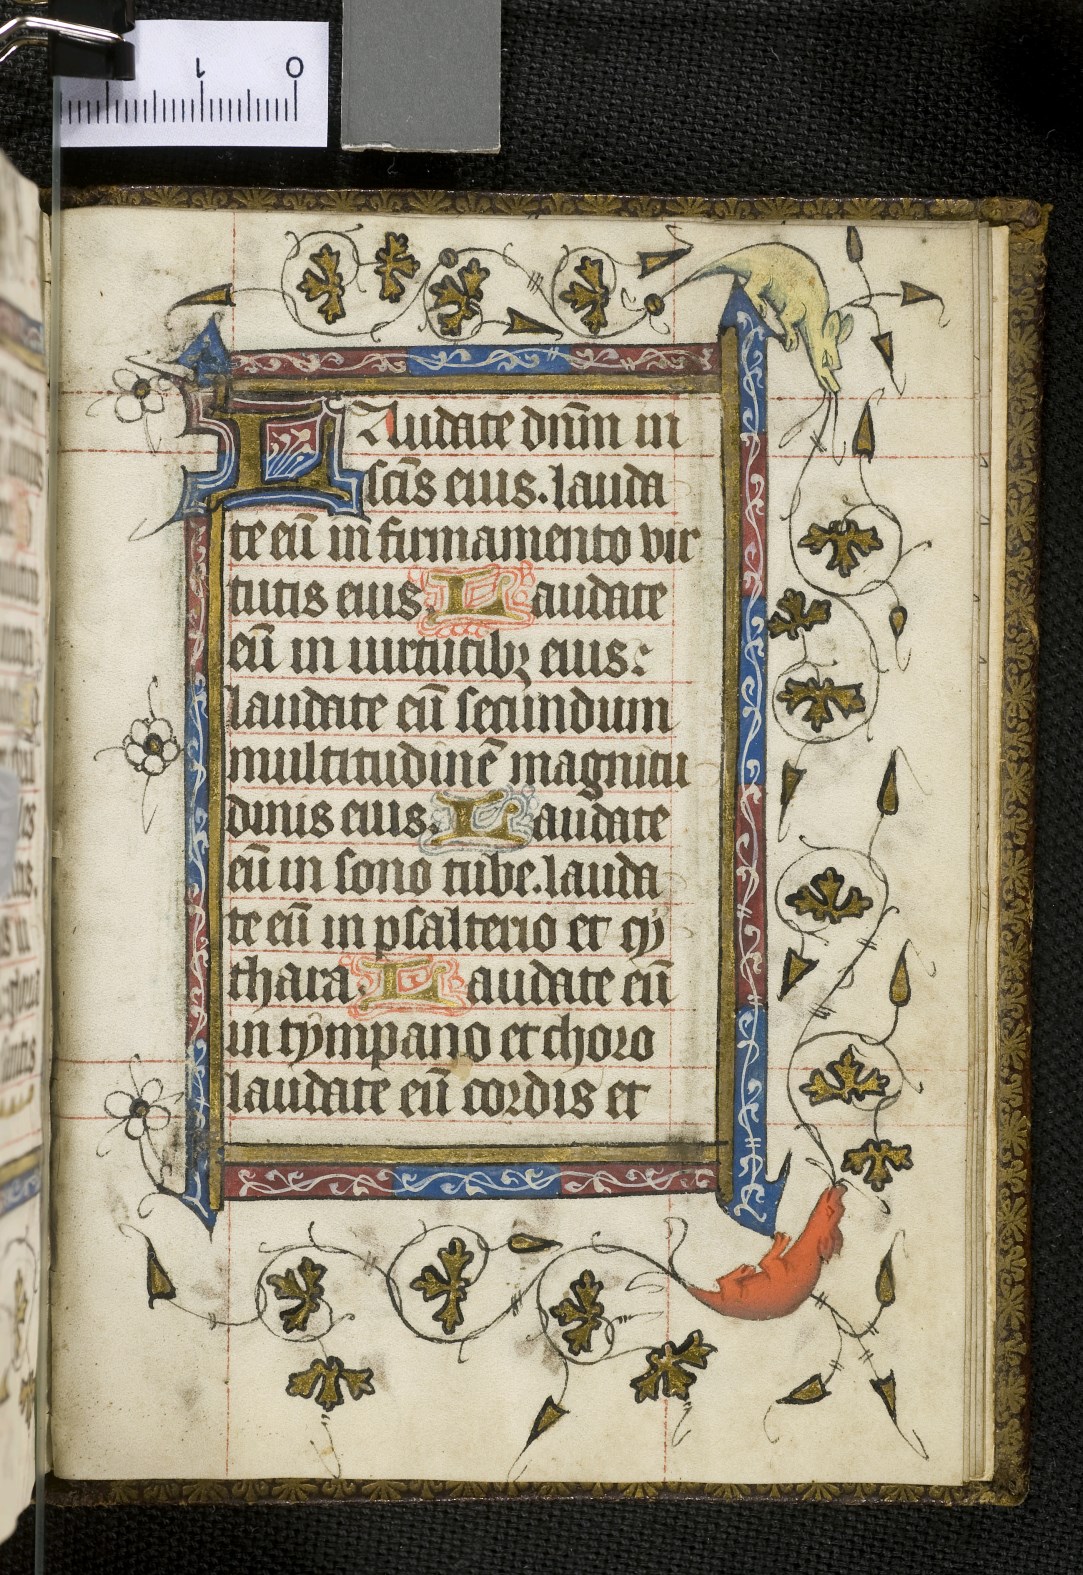 1 0
LAudate dn̄m in
sc̄is eius. lauda
te eū in firmamento vir
tutis eius. Laudate
eū in uirtutibꝫ eius:
laudate eū secundum
multitudinē magnitu
dinis eius. Laudate
eū in sono tube. lauda
te eū in psalterio et cÿ
thara. Laudate eū
in tÿmpano et choro
laudate eū cordis et